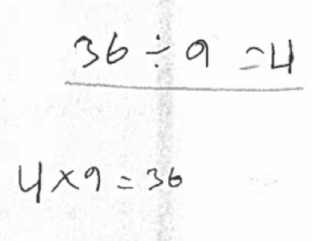 36 ÷ 9 = 4
4 × 9 = 36